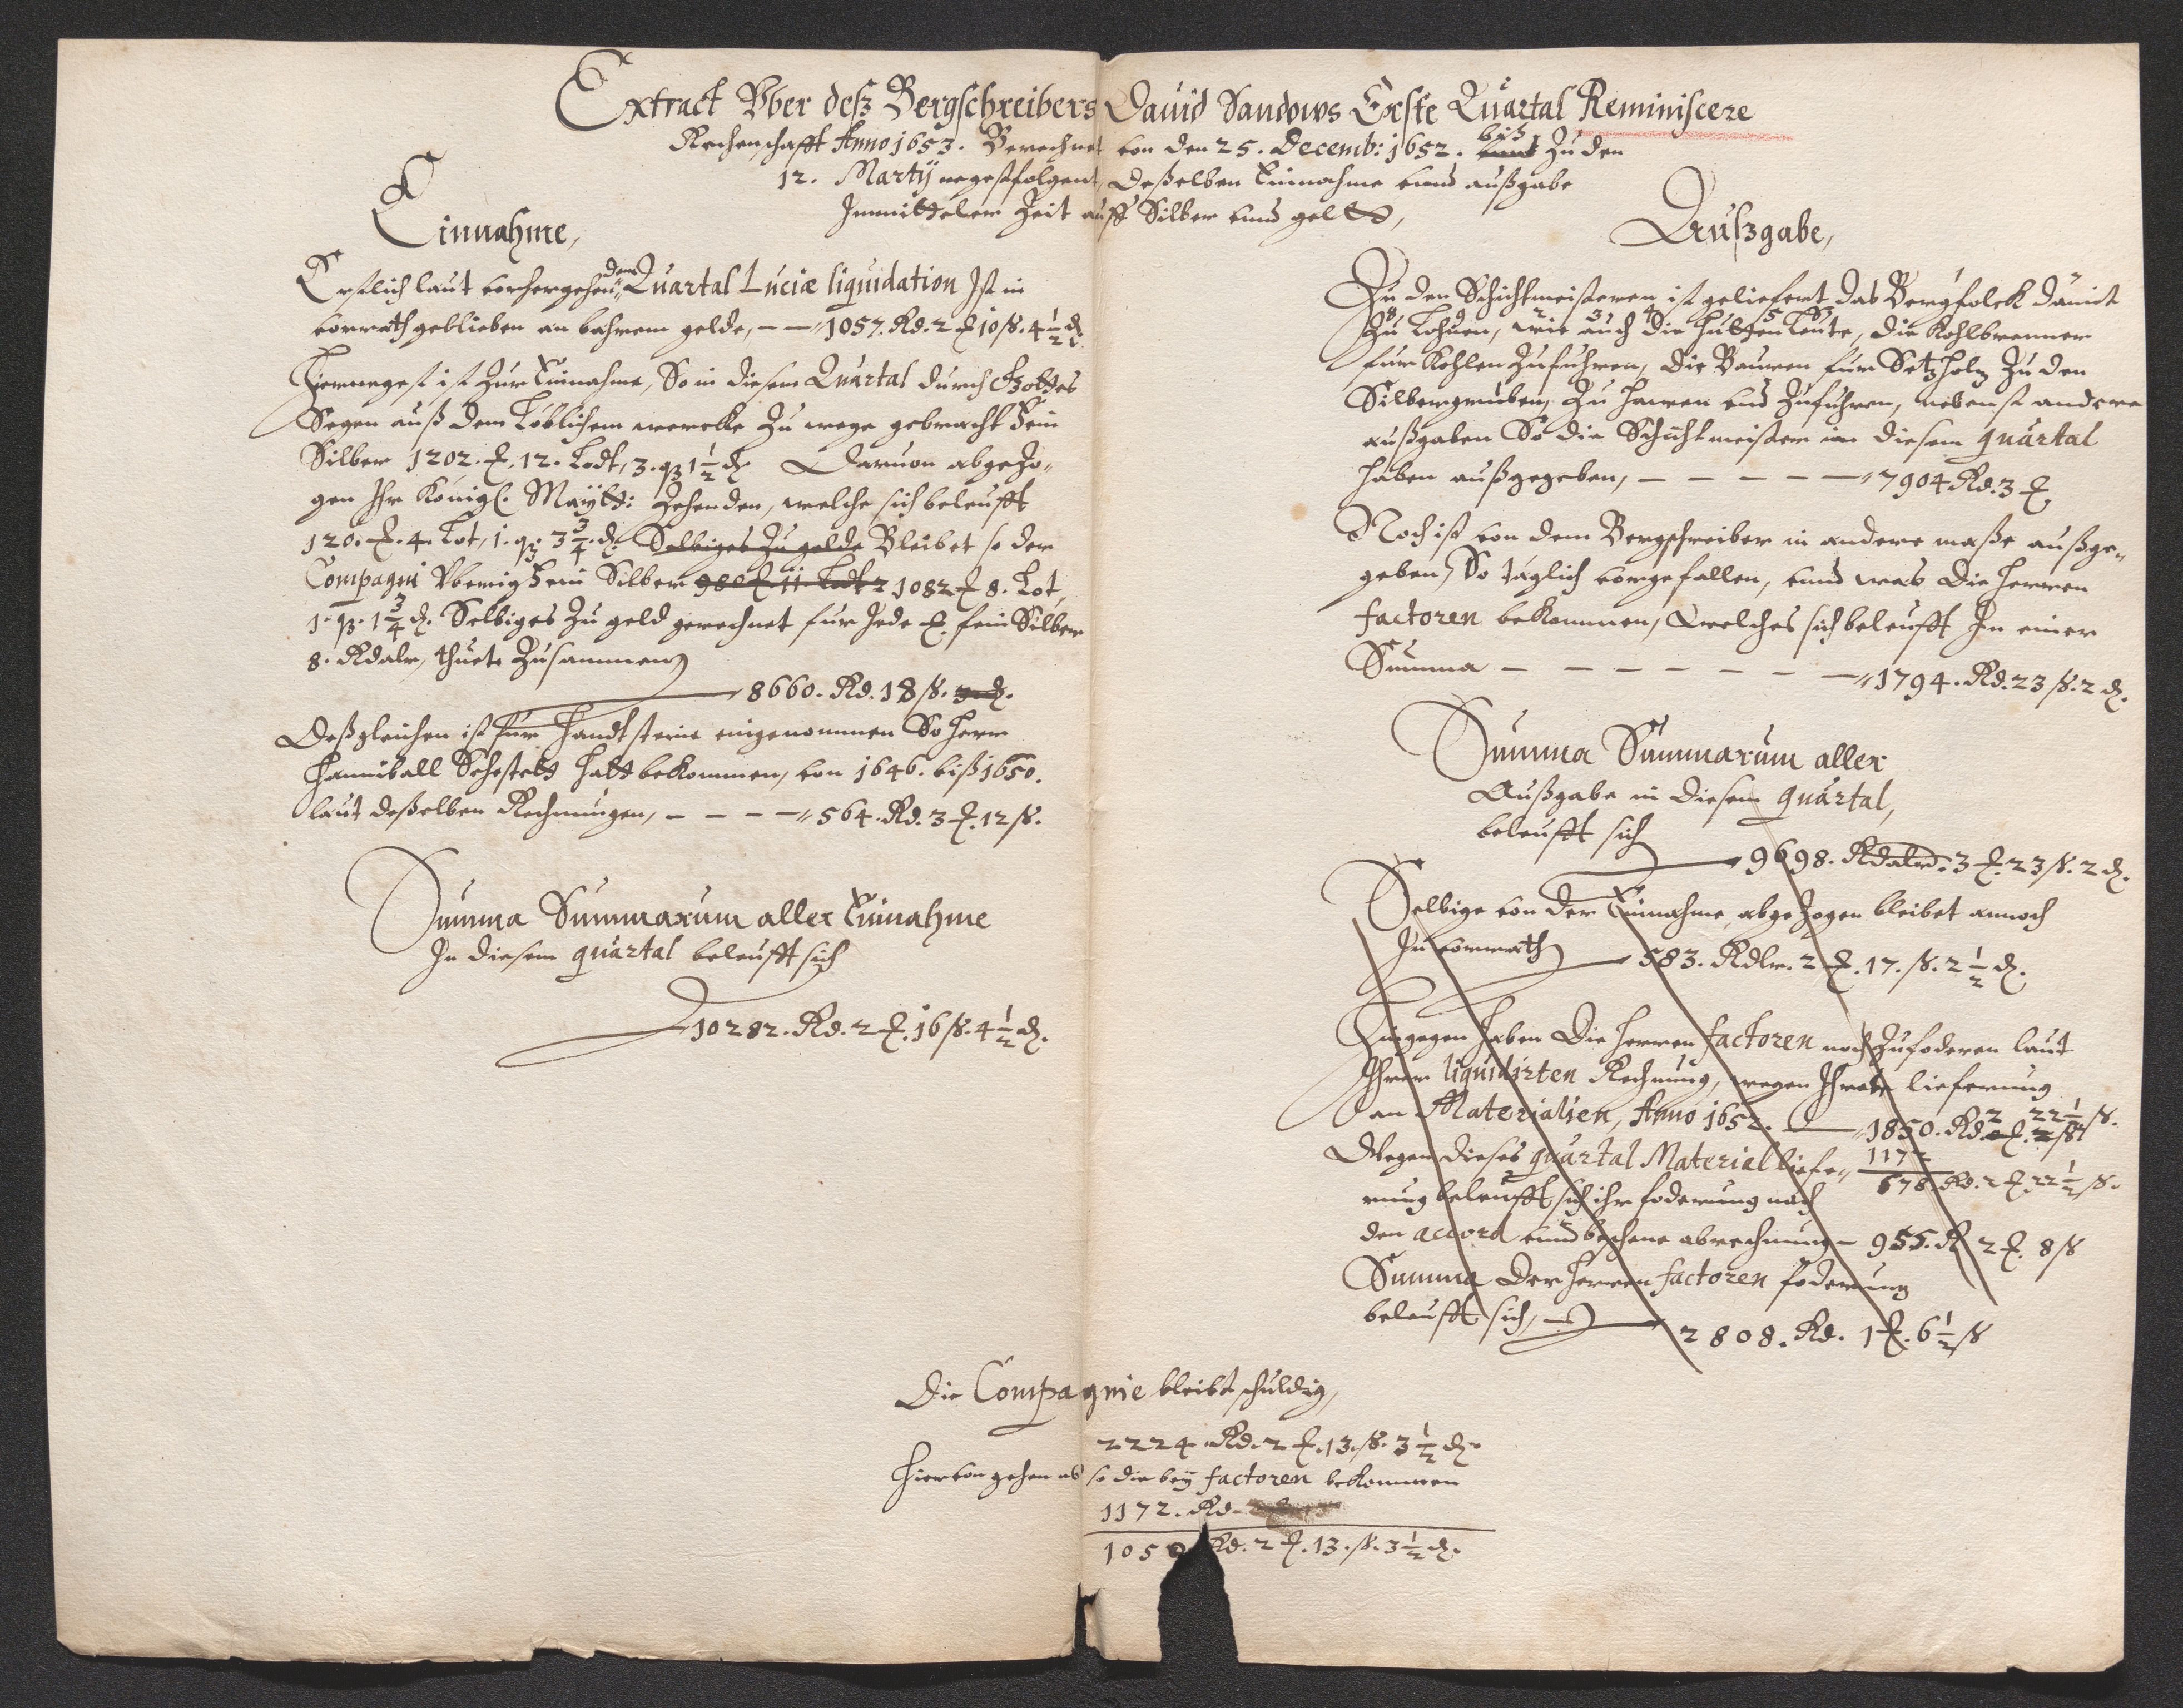 Extract Vber deß Bergschreibers David Sandows Erste Quartal Reminiscere
Rechenschafft Anno 1653. Berechnet von den 25. Decemb: 1652. biß zu den
12. Martÿ negestfolgent, deßelben Einnahme vnd außgabe
Immitteler Zeit auff Silber vnd geldt,
Einnahme,
Erstlich laut vorhergehenden Quartal Luciæ liquidation Ist in
vorrath geblieben an bahrem gelde, — — 1057. Rd. 2 ₰ 10 ß. 4 1/2 ₰.
Hiernegest ist zur Einnahme, So in diesem Quartal durch Gottes
Segen auß dem Löblichem wercke zu wege gebracht Fein
Silber 1202. ₰. 12. Lodt, 3. q3 1 1/2 ₰ Daruon abgezo-
gen Ihr Königl. Maÿtt: Zehenden, welche sich beleufft
120. ₰. 4. Lot, 1. q3 3 3/4 ₰. Selbiges zu gelde Bleibet so der
Compagni Vberig Fein Silber 980 ₰ 11 Lodt 2 1082 ₰ 8. Lot,
1. q3. 1 3/4 ₰. Selbiges zu geld gerechnet fur Jede ₰. fein Silber
8. Rdalr, thuet zusammen
8660. Rd. 18 ß. 3 ₰.
Deßgleichen ist fur Handtsteine eingenommen So Herr
Hanniball Sehestedt hatt bekommen, von 1646. biß 1650.
laut deßelben Rechnungen, — — — — 564. Rd. 3 ₰. 12 ß.
Summa Summarum aller Einnahme
In diesem quartal beleufft sich
10282. Rd. 2 ₰. 16 ß. 4 1/2 ₰.
Außgabe,
Zu den Schichtmeisteren ist geliefert das Bergfolck damit
zu Lohnen, wie auch die Hutten Leute, die Kohlbrenner
fur Kohlen Zufuhren, die Bauren fur Setzholz zu den
Silbergruben, zu hawen vnd Zufuhren, nebenst andere
außgaben So die Schichtmeister in diesem quartal
haben außgegeben, — — — — — 7904 Rd. 3 ₰
Noch ist von dem Bergschreiber in andere maße außge-
geben, So täglich vorgefallen, vnd was die Herren
factoren bekommen, welches sich beleufft In einer
Summa — — — — — — — 1794. Rd. 23 ß. 2 ₰.
Summa Summarum aller
Außgabe in diesem quartal,
beleufft sich
9698. Rdalr. 3 ₰. 23 ß. 2 ₰.
Selbige von der Einnahme abgezogen bleibet annoch
In vorrath 583. Rdlr. 2 ₰. 17. ß. 2 1/2 ₰.
Hingegen haben die Herren factoren noch zufoderen laut
Ihrer liquidirten Rechnung, wegen Ihrer lieferung
an Materialien, Anno 1652. — 1850. Rd. 2 ₰. 22 1/2 ß.
1172
Wegen dieses quartal Material liefe- 678 Rd. 2 ₰ 22 1/2 ß.
rung beleufft sich ihr foderung nach
den accord vnd beschene abrechnung — 955. R 2 ₰. 8 ß
Summa der Herren factoren foderung
beleufft sich, 2808. Rd. 1 ₰. 6 1/2 ß
Die Compagnie bleibt schuldig,
2224. Rd. 2 ₰. 13. ß. 3 1/2 ₰.
Hiervon gehen ab so die beÿ factoren bekommen
1172. Rd.
105 Rd. 2 ₰. 13. ß. 3 1/2 ₰.